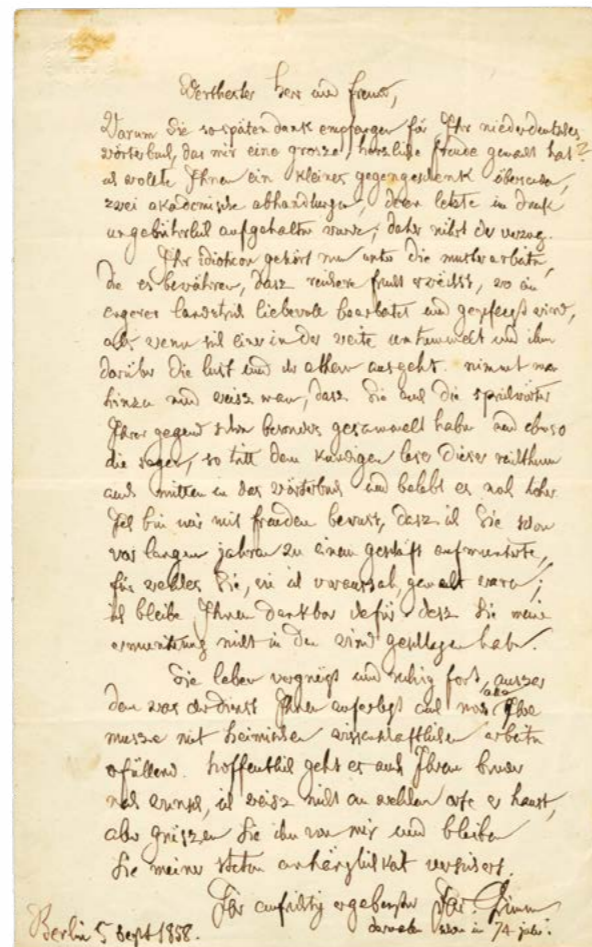 Werthester herr und freund,
Warum Sie so späten dank empfangen für Ihr niederdeutsches
wörterbuch, das mir eine grosze, herzliche freude gemacht hat?
ich wollte Ihnen ein kleines gegengeschenk übersenden,
zwei akademische abhandlungen, deren letzte im druck
ungebührlich aufgehalten wurde, daher rührt der verzug.
Ihr idioticon gehört nun unter die musterarbeiten,
die es bewähren, dasz reichere frucht erwächst, wo ein
engerer landstrich liebevoll bearbeitet und gepflegt wird,
als wenn sich einer in der weite tummelt und ihm
darüber die lust und der athem ausgeht. nimmt man
hinzu und weisz man, dasz Sie auch die sprichwörter
Ihrer gegend schon besonders gesammelt haben und ebenso
die sagen, so tritt dem kundigen leser dieser reichthum
auch mitten in das wörterbuch und belebt es noch höher.
Ich bin mir mit freuden bewust, dasz ich Sie schon
vor langen jahren zu einem geschäft aufmunterte,
für welches Sie, wie ich voraussah, gemacht waren;
ich bleibe Ihnen dankbar dafür dasz Sie meine
ermunterung nicht in den wind geschlagen haben.
Sie leben vergnügt und ruhig fort, auszer
dem was der dienst Ihnen auferlegt auch noch Ihre
musze mit heimischen wissenschaftlichen arbeiten
erfüllend. hoffentlich geht es auch Ihrem bruder
nach wunsch, ich weisz nicht an welchem orte er haust,
aber grüszen Sie ihn von mir und bleiben
Sie meiner steten anhänglichkeit versichert.
Ihr aufrichtig ergebenster Jac. Grimm
Berlin 5 sept 1858. dermalen schon im 74 jahr.